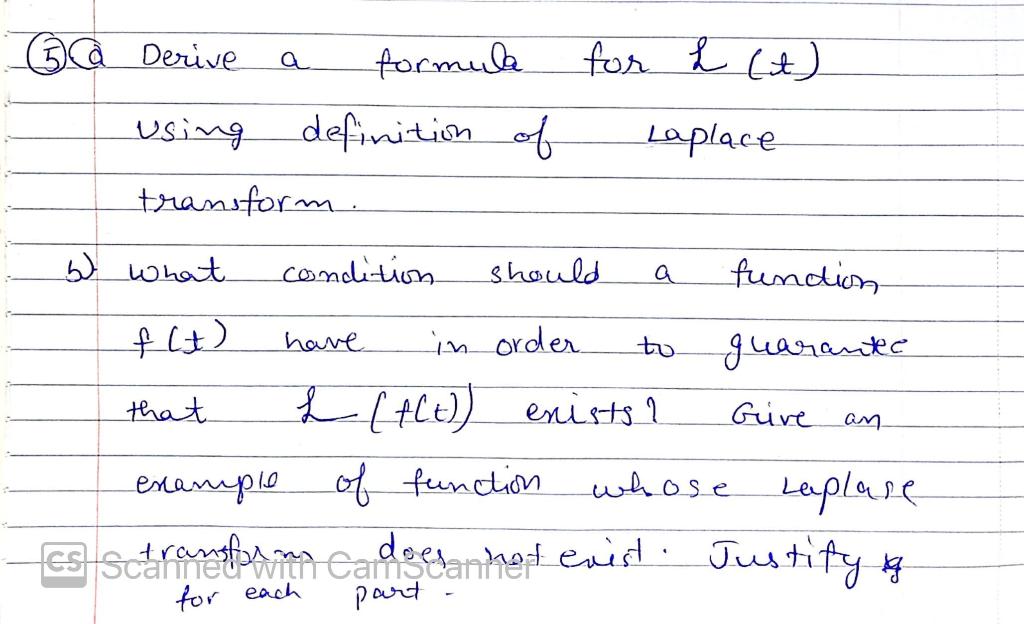 5 a Derive a formula for L (t)
using definition of Laplace
transform.
b) What condition should a function
f(t) have in order to guarantee
that L (f(t)) exists? Give an
example of function whose Laplase
transform does not exist. Justify
for each part.
CS Scanned with CamScanner